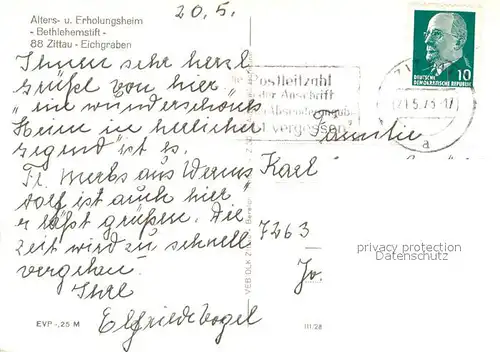 Alters- u. Erholungsheim
- Bethlehemstift -
88 Zittau - Eichgraben
20.5.
Ihnen sehr herzl
Grüße von hier
ein wunderschönes
Heim in herrlicher
Gegend ist es.
Fr. aus
dorf ist auch hier
läßt grüßen. Die
Zeit wird zu schnell
vergehen
Ihre
Elfriede Vogel
EVP -,25 M
VEB DLK
III/28
Postleitzahl
der Anschrift
vergessen
DEUTSCHE
DEMOKRATISCHE REPUBLIK
10
a
Familie
Karl
7263
Jo.
privacy protection